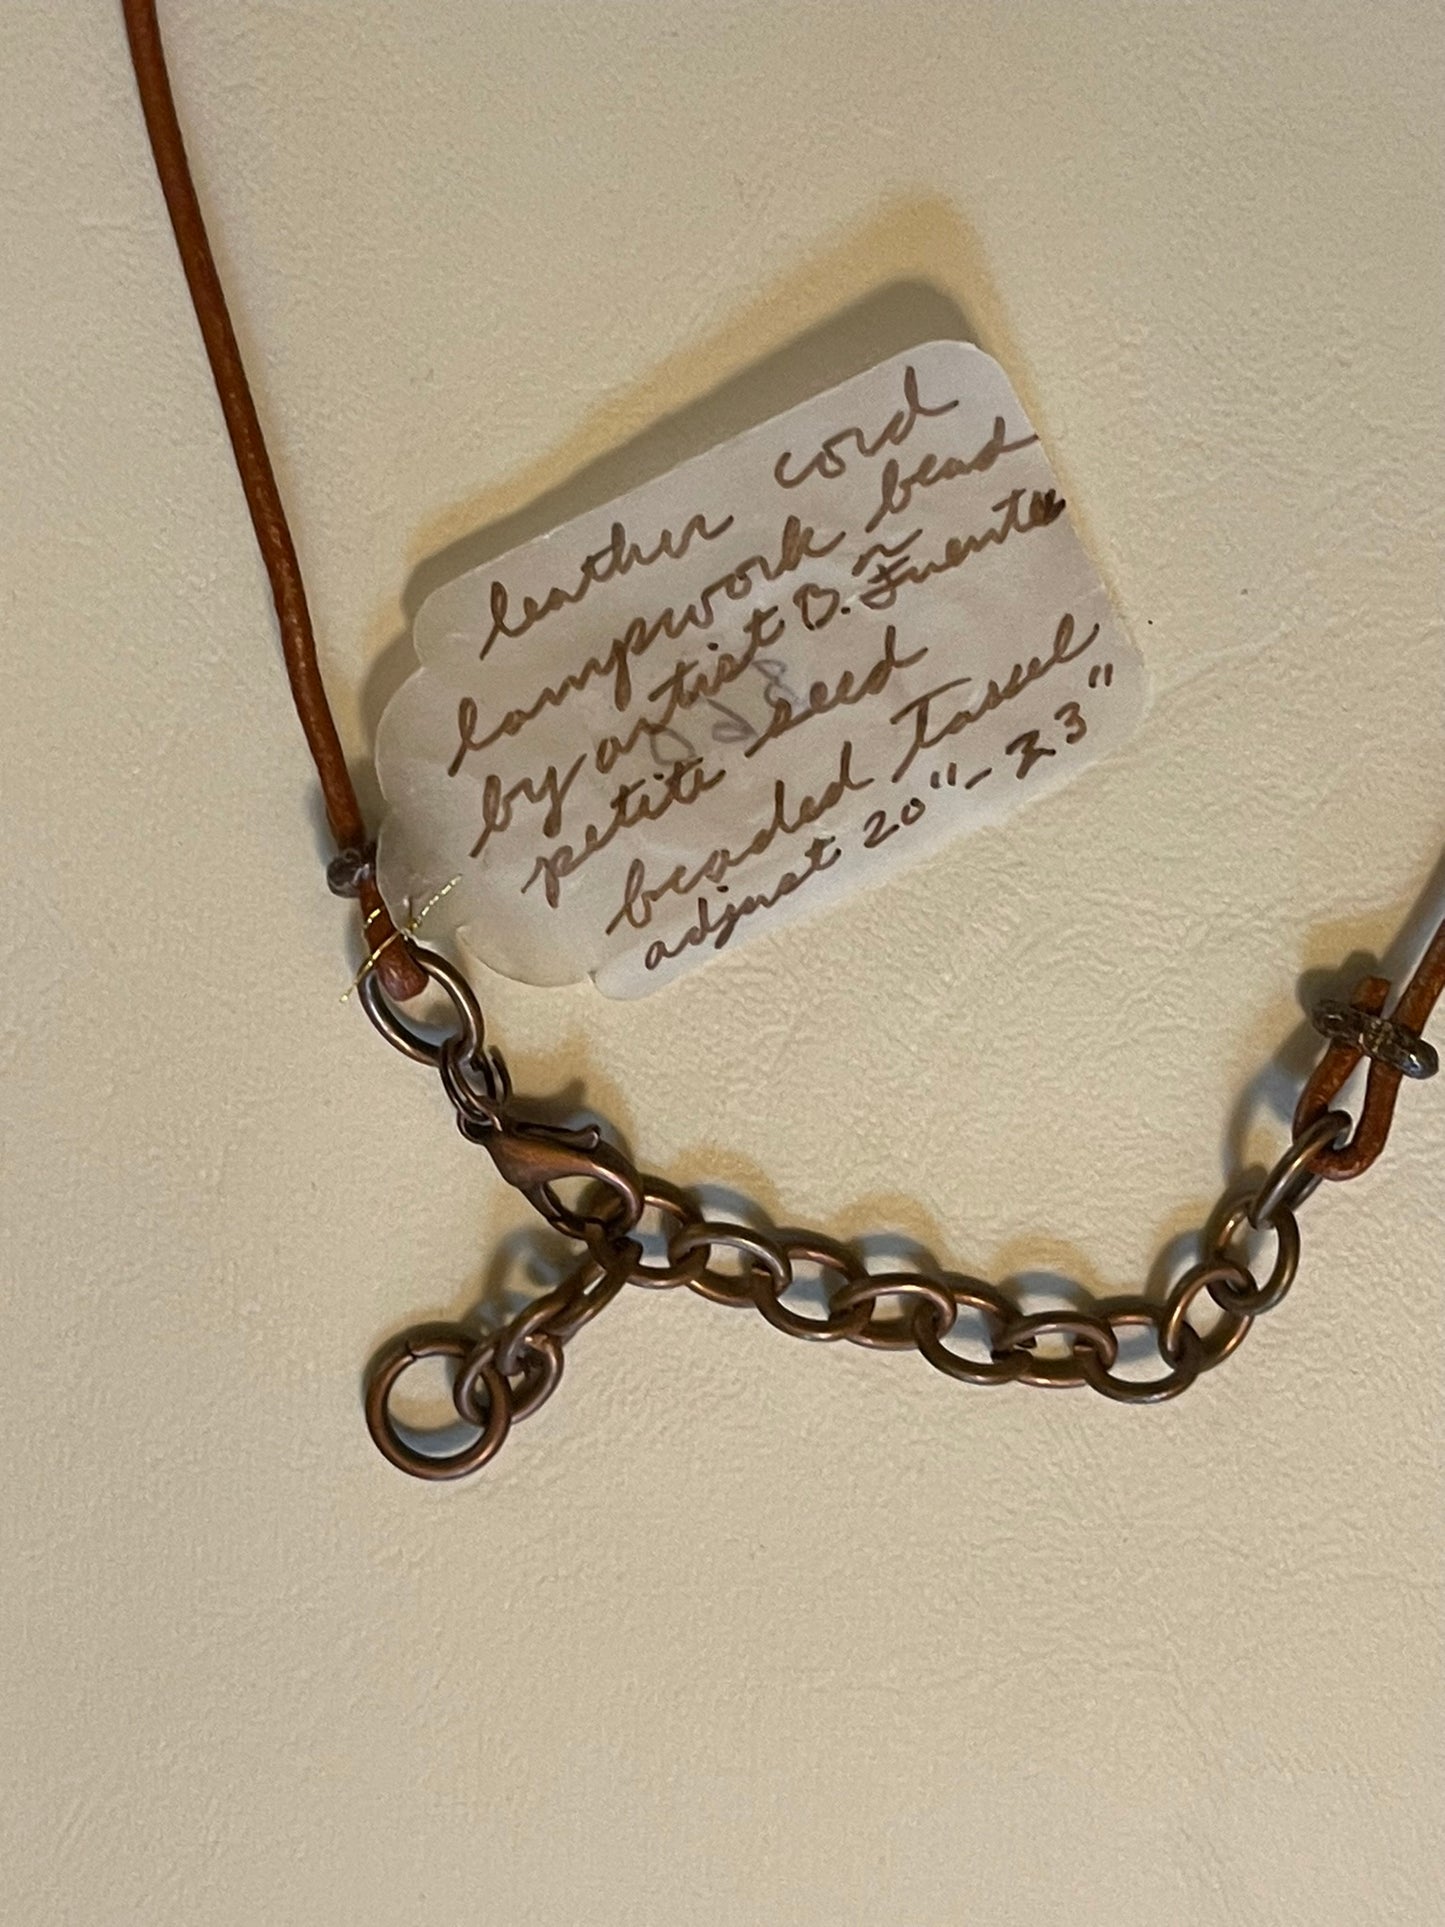 leather cord
lampwork bead
by artist B. Fuentes
petite seed
beaded Tassel
adjust 20"-23"